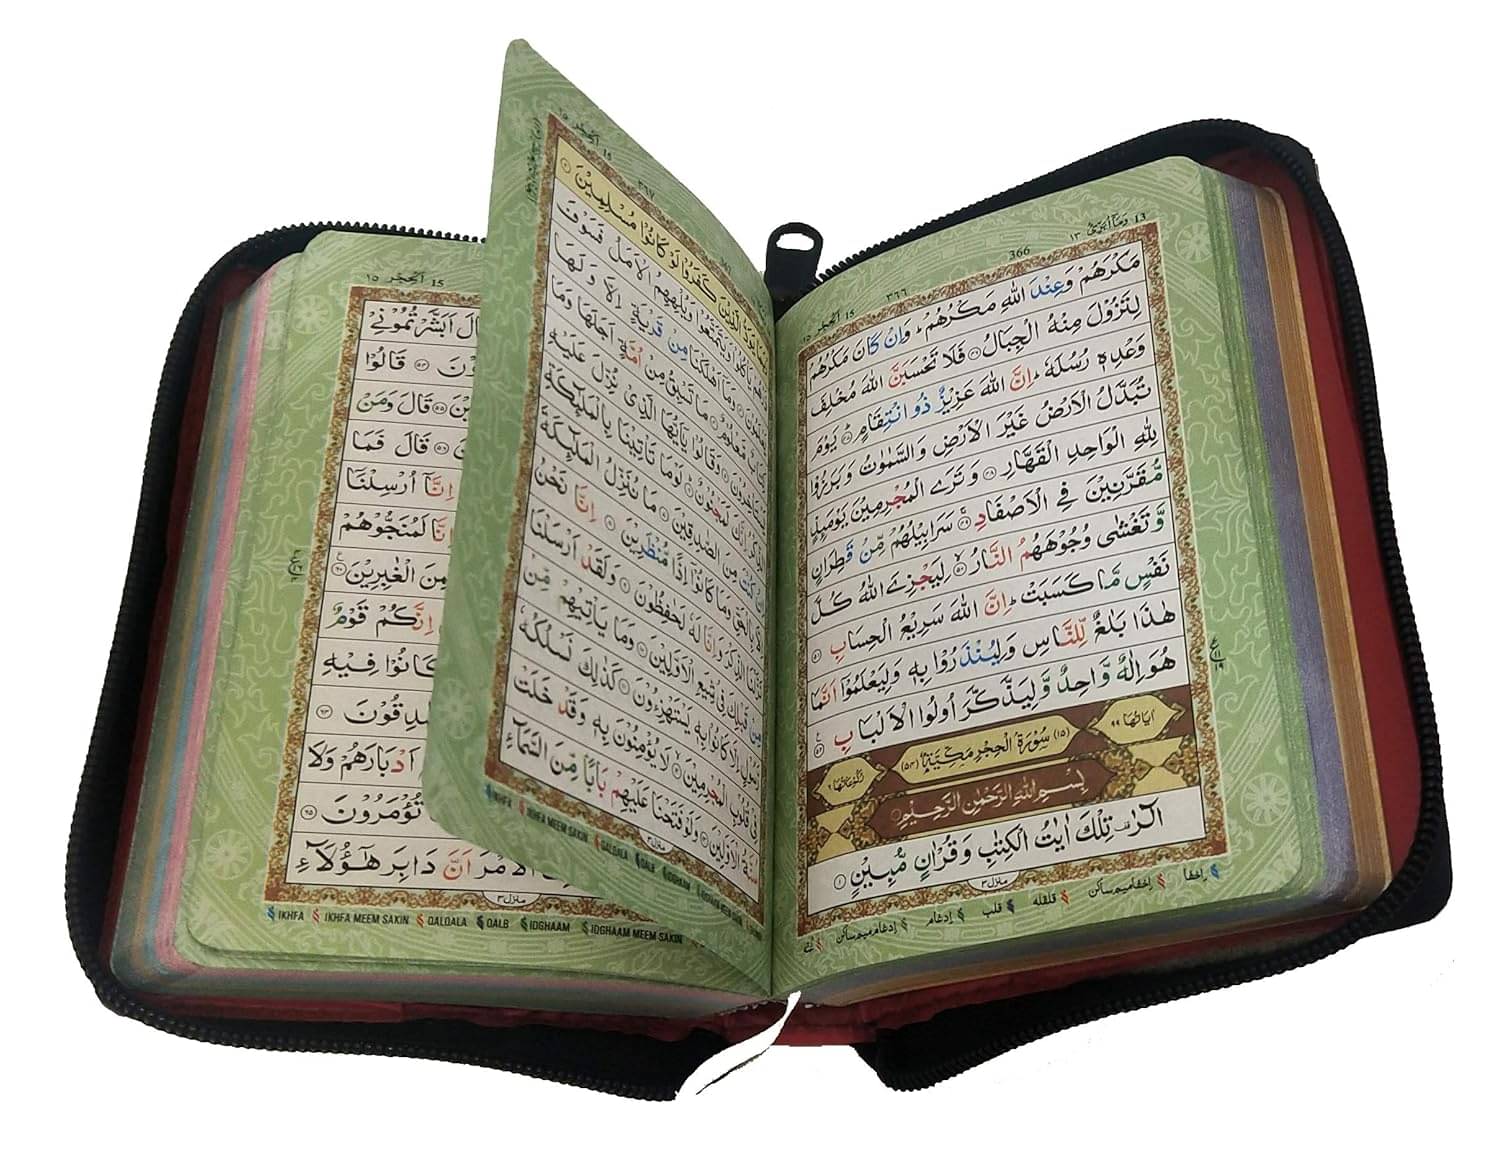 13 وَمَاۤ اُبَرِّئُ ١٣
366
٣٦٦
15 اَلْحِجْر ١٥
مَكْرَهُمْ وَعِنْدَ اللّٰهِ مَكْرُهُمْ ؕ وَاِنْ كَانَ مَكْرُهُمْ
لِتَزُوْلَ مِنْهُ الْجِبَالُ ﴿۴۶﴾ فَلَا تَحْسَبَنَّ اللّٰهَ مُخْلِفَ
وَعْدِهٖ رُسُلَهٗ ؕ اِنَّ اللّٰهَ عَزِيْزٌ ذُو انْتِقَامٍ ﴿۴۷﴾ يَوْمَ
تُبَدَّلُ الْاَرْضُ غَيْرَ الْاَرْضِ وَالسَّمٰوٰتُ وَبَرَزُوْا
لِلّٰهِ الْوَاحِدِ الْقَهَّارِ ﴿۴۸﴾ وَتَرَى الْمُجْرِمِيْنَ يَوْمَئِذٍ
مُّقَرَّنِيْنَ فِي الْاَصْفَادِ ﴿۴۹﴾ سَرَابِيْلُهُمْ مِّنْ قَطِرَانٍ
وَّتَغْشٰى وُجُوْهَهُمُ النَّارُ ﴿۵۰﴾ لِيَجْزِيَ اللّٰهُ كُلَّ
نَفْسٍ مَّا كَسَبَتْ ؕ اِنَّ اللّٰهَ سَرِيْعُ الْحِسَابِ ﴿۵۱﴾
هٰذَا بَلٰغٌ لِّلنَّاسِ وَلِيُنْذَرُوْا بِهٖ وَلِيَعْلَمُوْۤا اَنَّمَا
هُوَ اِلٰهٌ وَّاحِدٌ وَّلِيَذَّكَّرَ اُولُوا الْاَلْبَابِ ﴿۵۲﴾
اٰيَاتُهَا ٩٩
(١٥) سُوْرَةُ الْحِجْرِ مَكِّيَّةٌ (٥٤)
رُكُوْعَاتُهَا ٦
بِسْمِ اللّٰهِ الرَّحْمٰنِ الرَّحِيْمِ
الٓرٰ تِلْكَ اٰيٰتُ الْكِتٰبِ وَقُرْاٰنٍ مُّبِيْنٍ ﴿۱﴾
منزل ٣
إخفا إخفا ميم ساكن قلقله قلب إدغام إدغام ميم ساكن
15 اَلْحِجْر ١٥
٣٦٧
367
رُبَمَا يَوَدُّ الَّذِيْنَ كَفَرُوْا لَوْ كَانُوْا مُسْلِمِيْنَ ﴿۲﴾
يَاْكُلُوْا وَيَتَمَتَّعُوْا وَيُلْهِهِمُ الْاَمَلُ فَسَوْفَ
يَعْلَمُوْنَ ﴿۳﴾ وَمَاۤ اَهْلَكْنَا مِنْ قَرْيَةٍ اِلَّا وَلَهَا
كِتَابٌ مَّعْلُوْمٌ ﴿۴﴾ مَا تَسْبِقُ مِنْ اُمَّةٍ اَجَلَهَا وَمَا
يَسْتَاْخِرُوْنَ ﴿۵﴾ وَقَالُوْا يٰۤاَيُّهَا الَّذِيْ نُزِّلَ عَلَيْهِ
الذِّكْرُ اِنَّكَ لَمَجْنُوْنٌ ﴿۶﴾ لَوْ مَا تَاْتِيْنَا بِالْمَلٰٓئِكَةِ
اِنْ كُنْتَ مِنَ الصّٰدِقِيْنَ ﴿۷﴾ مَا نُنَزِّلُ الْمَلٰٓئِكَةَ
اِلَّا بِالْحَقِّ وَمَا كَانُوْۤا اِذًا مُّنْظَرِيْنَ ﴿۸﴾ اِنَّا نَحْنُ
نَزَّلْنَا الذِّكْرَ وَاِنَّا لَهٗ لَحٰفِظُوْنَ ﴿۹﴾ وَلَقَدْ اَرْسَلْنَا
مِنْ قَبْلِكَ فِيْ شِيَعِ الْاَوَّلِيْنَ ﴿۱۰﴾ وَمَا يَاْتِيْهِمْ مِّنْ
رَّسُوْلٍ اِلَّا كَانُوْا بِهٖ يَسْتَهْزِءُوْنَ ﴿۱۱﴾ كَذٰلِكَ نَسْلُكُهٗ
فِيْ قُلُوْبِ الْمُجْرِمِيْنَ ﴿۱۲﴾ لَا يُؤْمِنُوْنَ بِهٖ وَقَدْ خَلَتْ
سُنَّةُ الْاَوَّلِيْنَ ﴿۱۳﴾ وَلَوْ فَتَحْنَا عَلَيْهِمْ بَابًا مِّنَ السَّمَآءِ
منزل ٣
IKHFA IKHFA MEEM SAKIN QALQALA QALB IDGHAAM
15 اَلْحِجْر ١٥
اَبَشَّرْتُمُوْنِيْ
قَالُوْا
قَالَ وَمَنْ
قَالَ فَمَا
اِنَّاۤ اُرْسِلْنَا
اِنَّا لَمُنَجُّوْهُمْ
مِنَ الْغٰبِرِيْنَ ﴿۶۰﴾
اِنَّكُمْ قَوْمٌ
كَانُوْا فِيْهِ
لَصٰدِقُوْنَ ﴿۶۴﴾
اَدْبَارَهُمْ وَلَا
تُؤْمَرُوْنَ ﴿۶۵﴾
الْاَمْرَ اَنَّ دَابِرَ هٰۤؤُلَآءِ
منزل ٣
IKHFA IKHFA MEEM SAKIN QALQALA QALB IDGHAAM IDGHAAM MEEM SAKIN